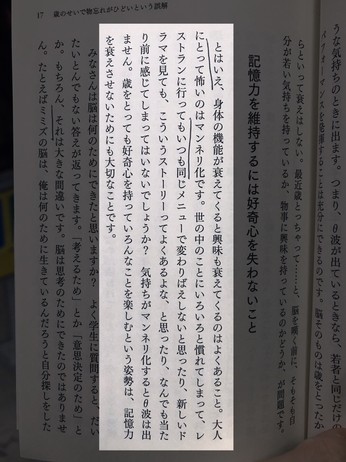 17　歳のせいで物忘れがひどいという誤解
うような気持ちのときに出ます。つまり、θ波が出ているときなら、若者と同じだけ
らといって衰えはしない。最近歳とっちゃって……と、脳を嘆く前に、そもそも自
分が若い気持ちを持っているか、物事に興味を持っているのかどうか、が問題です。
記憶力を維持するには好奇心を失わないこと
とはいえ、身体の機能が衰えてくると興味も衰えてくるのはよくあること。大人
にとって怖いのはマンネリ化です。世の中のことにいろいろと慣れてしまって、レ
ストランに行ってもいつも同じメニューで変わりばえしないと思ったり、新しいド
ラマを見ても、こういうストーリーってよくあるよな、と思ったり、なんでも当た
り前に感じてしまってはいないでしょうか？　気持ちがマンネリ化するとθ波は出
ません。歳をとっても好奇心を持っていろんなことを楽しむという姿勢は、記憶力
を衰えさせないためにも大切なことです。
みなさんは脳は何のためにできたと思いますか？　よく学生に質問すると、だい
たいとんでもない答えが返ってきます。「考えるため」とか「意思決定のため」と
か。もちろん、それは大きな間違いです。脳は思考のためにできたのではありませ
ん。たとえばミミズの脳は、俺は何のために生きているんだろうと自分探しをした